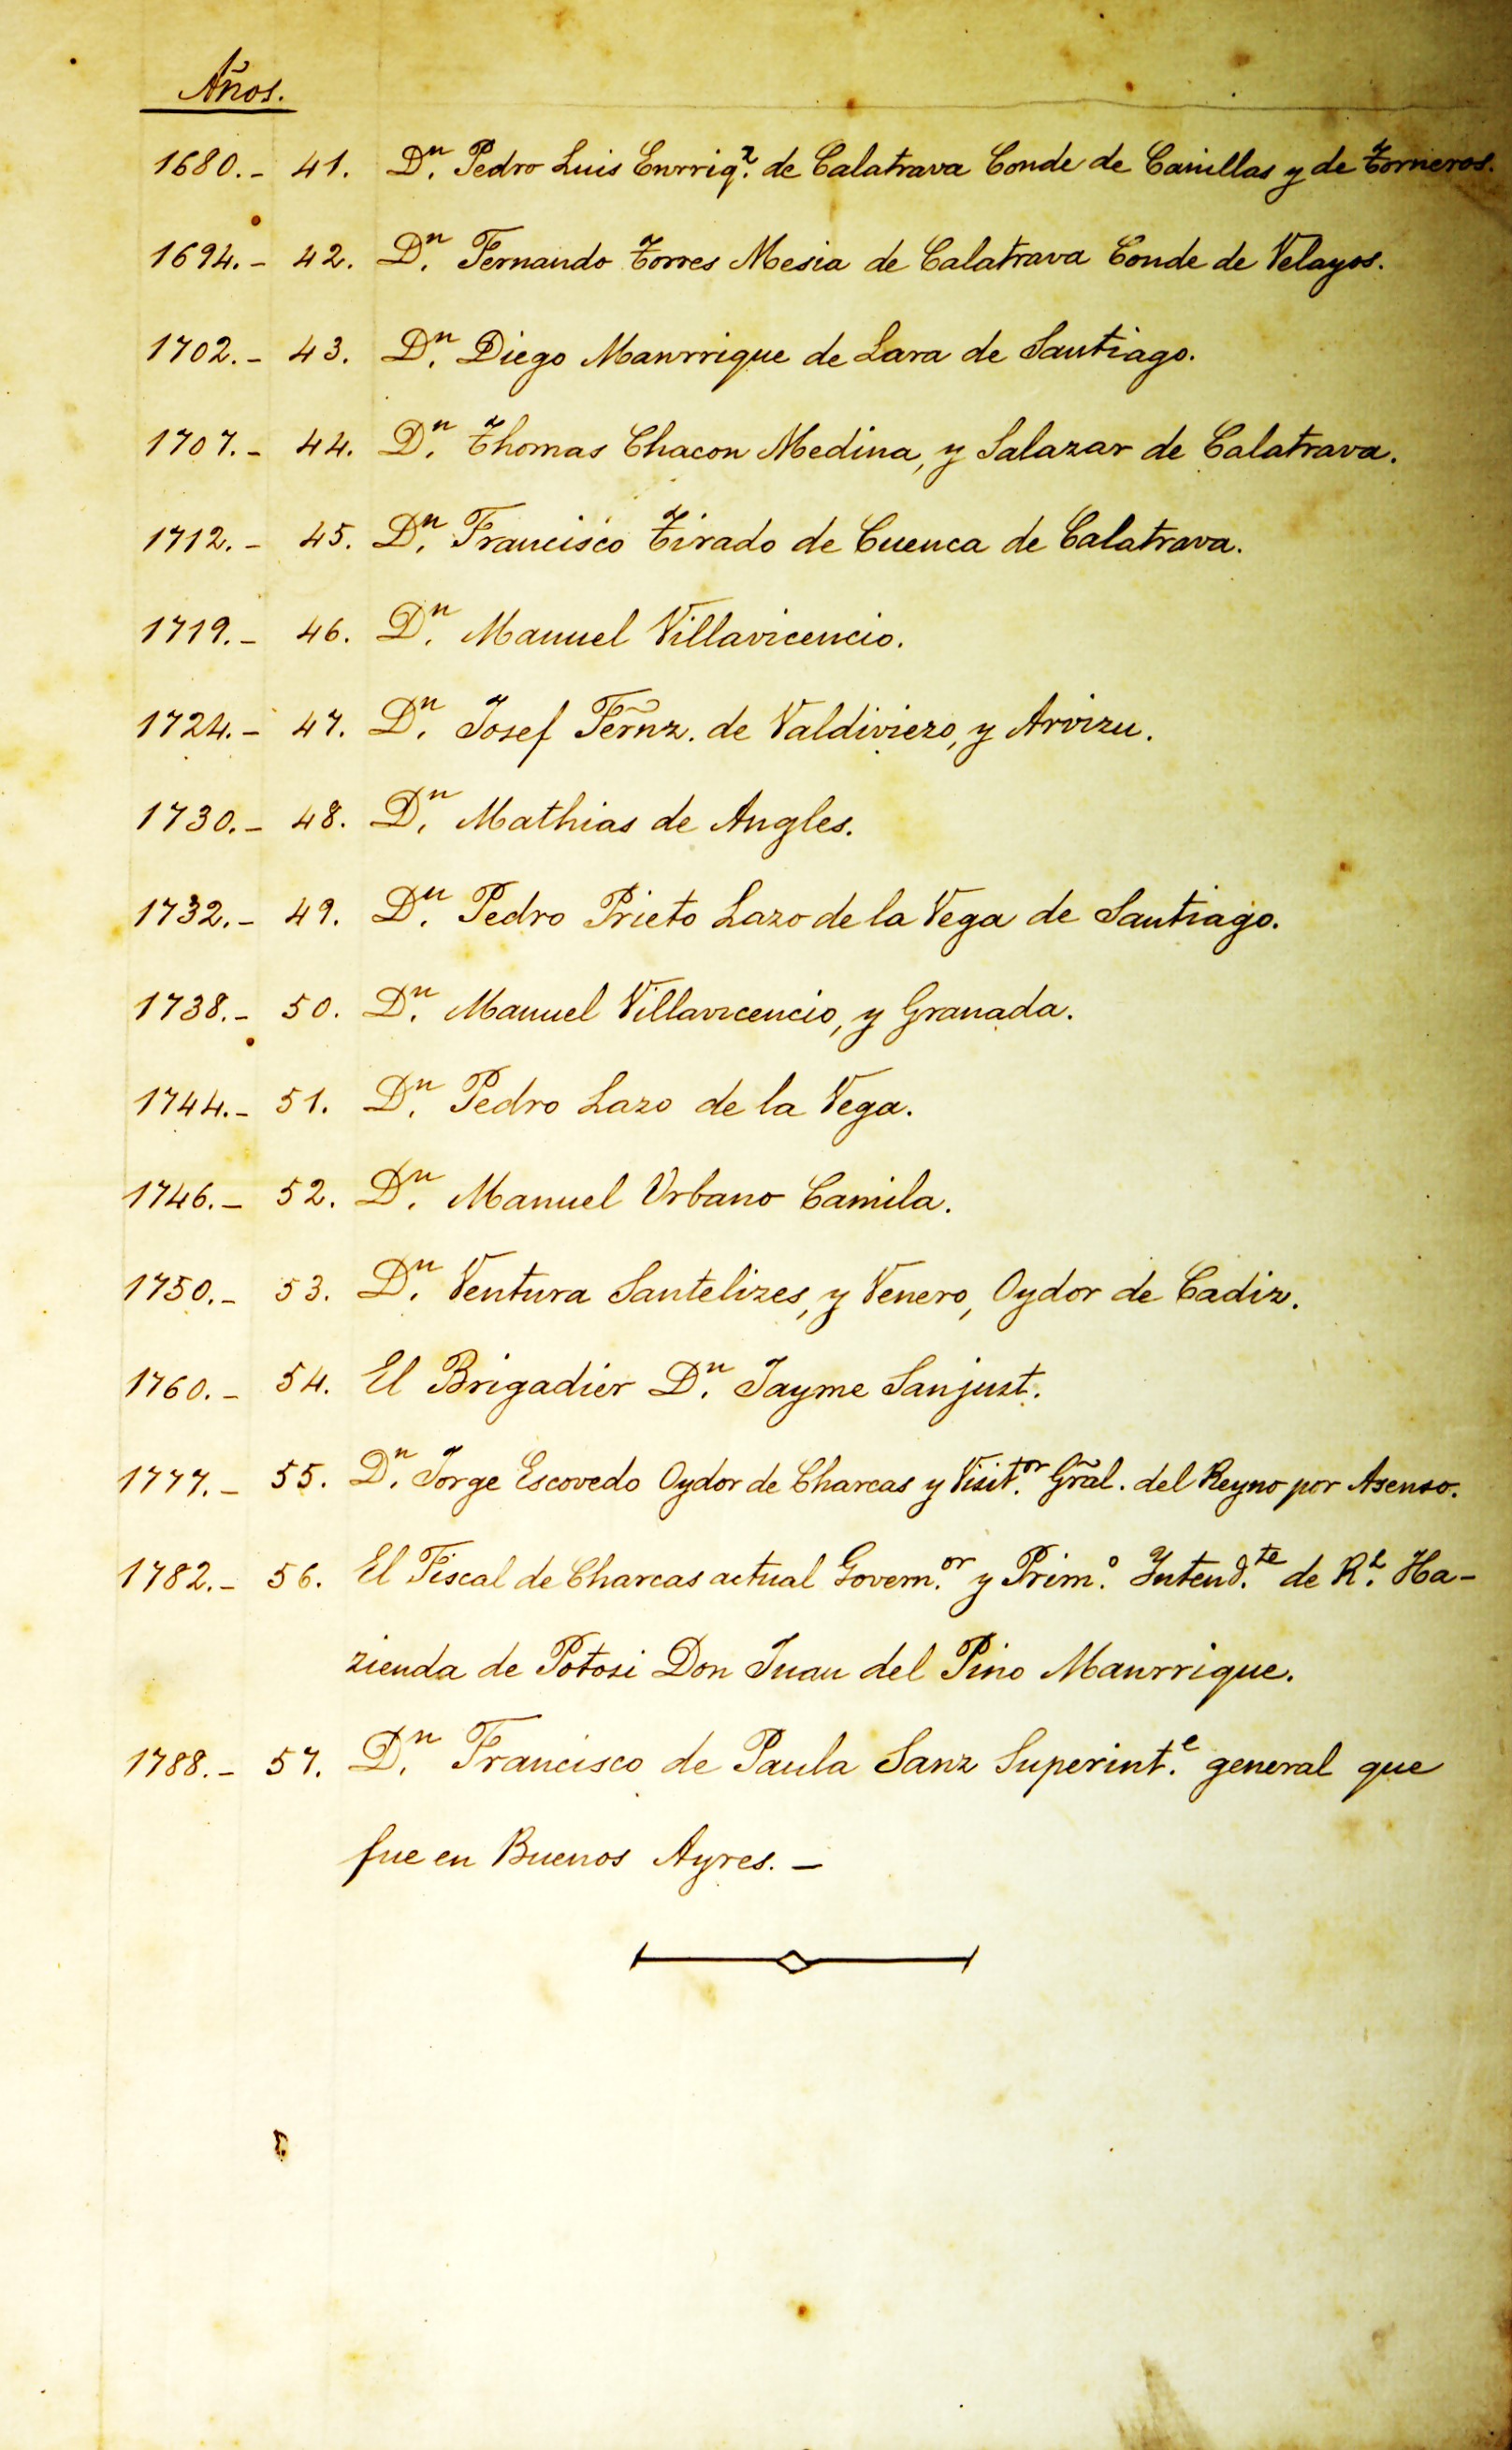 Años.
1680.- 41. Dn. Pedro Luis Enrriqz. de Calatrava Conde de Canillas y de Torneros.
1694.- 42. Dn. Fernando Torres Mesia de Calatrava Conde de Velayos.
1702.- 43. Dn. Diego Manrrique de Lara de Santiago.
1707.- 44. Dn. Thomas Chacon Medina, y Salazar de Calatrava.
1712.- 45. Dn. Francisco Tirado de Cuenca de Calatrava.
1719.- 46. Dn. Manuel Villavicencio.
1724.- 47. Dn. Josef Fernz. de Valdiviezo, y Arvizu.
1730.- 48. Dn. Mathias de Angles.
1732.- 49. Dn. Pedro Prieto Lazo de la Vega de Santiago.
1738.- 50. Dn. Manuel Villavicencio, y Granada.
1744.- 51. Dn. Pedro Lazo de la Vega.
1746.- 52. Dn. Manuel Urbano Camila.
1750.- 53. Dn. Ventura Santelizes, y Venero, Oydor de Cadiz.
1760.- 54. El Brigadier Dn. Jayme Sanjust.
1777.- 55. Dn. Jorge Escovedo Oydor de Charcas y Visitor. Gral. del Reyno por Asenso.
1782.- 56. El Fiscal de Charcas actual Governor. y Primo. Intendte. de Rl. Ha-
zienda de Potosi Don Juan del Pino Manrrique.
1788.- 57. Dn. Francisco de Paula Sanz Superinte. general que
fue en Buenos Ayres. -